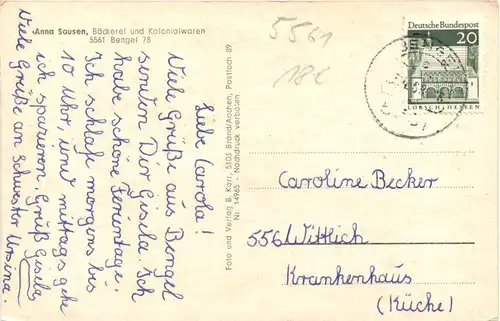 Anna Sausen, Bäckerei und Kolonialwaren
5561 Bengel 78
Liebe Carola!
Viele Grüße aus Bengel
sendet Dir Gisela. Ich
habe schöne Ferientage.
Ich schlafe morgens bis
10 Uhr, und mittags gehe
ich spazieren. Gruß Gisela,
Viele Grüße an Schwester Ursina.
Foto und Verlag B. Kari, 5105 Brand/Aachen, Postfach 89
Nr. 14965 - Nachdruck verboten
5561
18£
Deutsche Bundespost
20
LORSCH/HESSEN
Caroline Becker
556 Wittlich
Krankenhaus
(Küche)